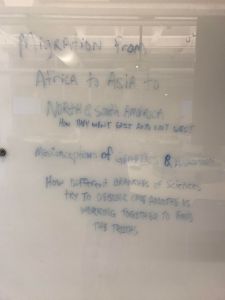 MIGRATION from
AFRICA to ASIA to
NORTH & SOUTH AMERICA
HOW THEY WENT EAST AND NOT WEST
Misconceptions of GENETICS &
HOW DIFFERENT BRANCHES OF SCIENCES
TRY TO DEBUNK ONE ANOTHER VS
WORKING TOGETHER TO FIND
THE TRUTHS